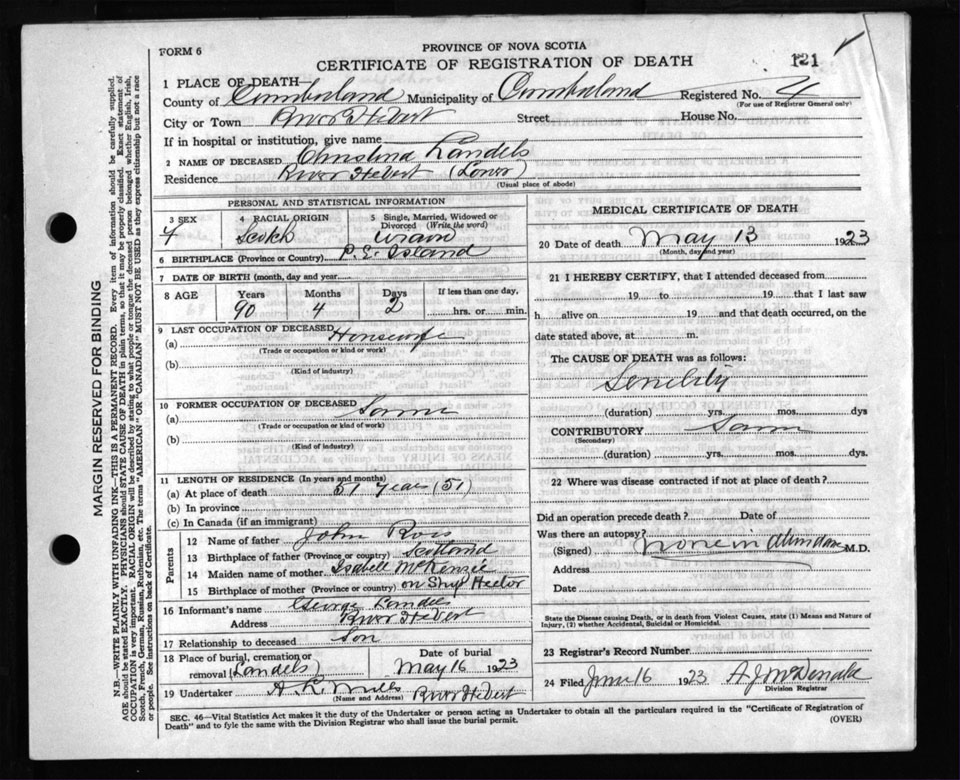 FORM 6
PROVINCE OF NOVA SCOTIA
CERTIFICATE OF REGISTRATION OF DEATH
121
1 PLACE OF DEATH—
County of Cumberland Municipality of Cumberland Registered No. 4
(For use of Registrar General only)
City or Town River Hebert Street House No.
If in hospital or institution, give name
2 NAME OF DECEASED Christina Landels
Residence River Hebert (Lower)
(Usual place of abode)
PERSONAL AND STATISTICAL INFORMATION
3 SEX
4 RACIAL ORIGIN Scotch
5 Single, Married, Widowed or Divorced (Write the word)
6 BIRTHPLACE (Province or Country) P. E. Island
7 DATE OF BIRTH (month, day and year)
8 AGE Years Months Days If less than one day,
90 4 2 hrs. or min.
9 LAST OCCUPATION OF DECEASED
(a) Housewife
(Trade or occupation or kind or work)
(b)
(Kind of industry)
10 FORMER OCCUPATION OF DECEASED
(a) Same
(Trade or occupation or kind or work)
(b)
(Kind of industry)
11 LENGTH OF RESIDENCE (In years and months)
(a) At place of death 51 years (51)
(b) In province
(c) In Canada (if an immigrant)
Parents
12 Name of father John Ross
13 Birthplace of father (Province or country) Scotland
14 Maiden name of mother Isabell McKenzie
15 Birthplace of mother (Province or country) on Ship Hector
16 Informant's name George Landels
Address River Hebert
17 Relationship to deceased Son
18 Place of burial, cremation or removal (Landels)
Date of burial May 16 1923
19 Undertaker A R Mills River Hebert
(Name and Address)
MEDICAL CERTIFICATE OF DEATH
20 Date of death May 13 1923
(Month, day and year)
21 I HEREBY CERTIFY, that I attended deceased from
19 to 19 that I last saw
h alive on 19 and that death occurred, on the
date stated above, at m.
The CAUSE OF DEATH was as follows:
Senility
(duration) yrs. mos. dys
CONTRIBUTORY Same
(Secondary)
(duration) yrs. mos. dys.
22 Where was disease contracted if not at place of death?
Did an operation precede death? Date of
Was there an autopsy?
(Signed) none in attendance M.D.
Address
Date
State the Disease causing Death, or in death from Violent Causes, state (1) Means and Nature of
Injury, (2) whether Accidental, Suicidal or Homicidal.
23 Registrar's Record Number
24 Filed June 16 1923 A J McDonald
Division Registrar
SEC. 46—Vital Statistics Act makes it the duty of the Undertaker or person acting as Undertaker to obtain all the particulars required in the "Certificate of Registration of
Death" and to fyle the same with the Division Registrar who shall issue the burial permit.
(OVER)
MARGIN RESERVED FOR BINDING
N.B.—WRITE PLAINLY WITH UNFADING INK—THIS IS A PERMANENT RECORD. Every item of information should be carefully supplied.
AGE should be stated EXACTLY. PHYSICIANS should STATE CAUSE OF DEATH in plain terms, so that it may be properly classified. Exact statement of
OCCUPATION is very important. RACIAL ORIGIN will be described by stating to what people or tongue the deceased person belonged whether English, Irish,
Scotch, French, German, Russian, Ruthenian, etc. The terms "AMERICAN" OR "CANADIAN" MUST NOT BE USED as they express citizenship but not a race
or people. See instructions on back of Certificate.